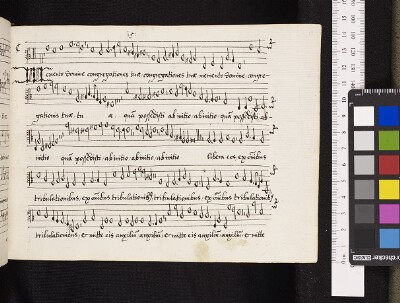 Memento domine congregationis tuæ congregationis tuæ memento domine congre
gationis tuæ tu æ quā possedisti ab initio ab initio quā possedisti ab
initio quā possedisti ab initio ab initio ab initio libera eos ex oībus
tribulationibus, ex oībus tribulationib9, tribulationibus, ex oībus tribulationib9,
tribulationibus, et mitte eis angelūm, angelūm, et mitte eis angelūm angelūm, et mitte